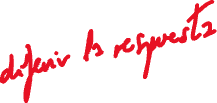 diferir la respuesta